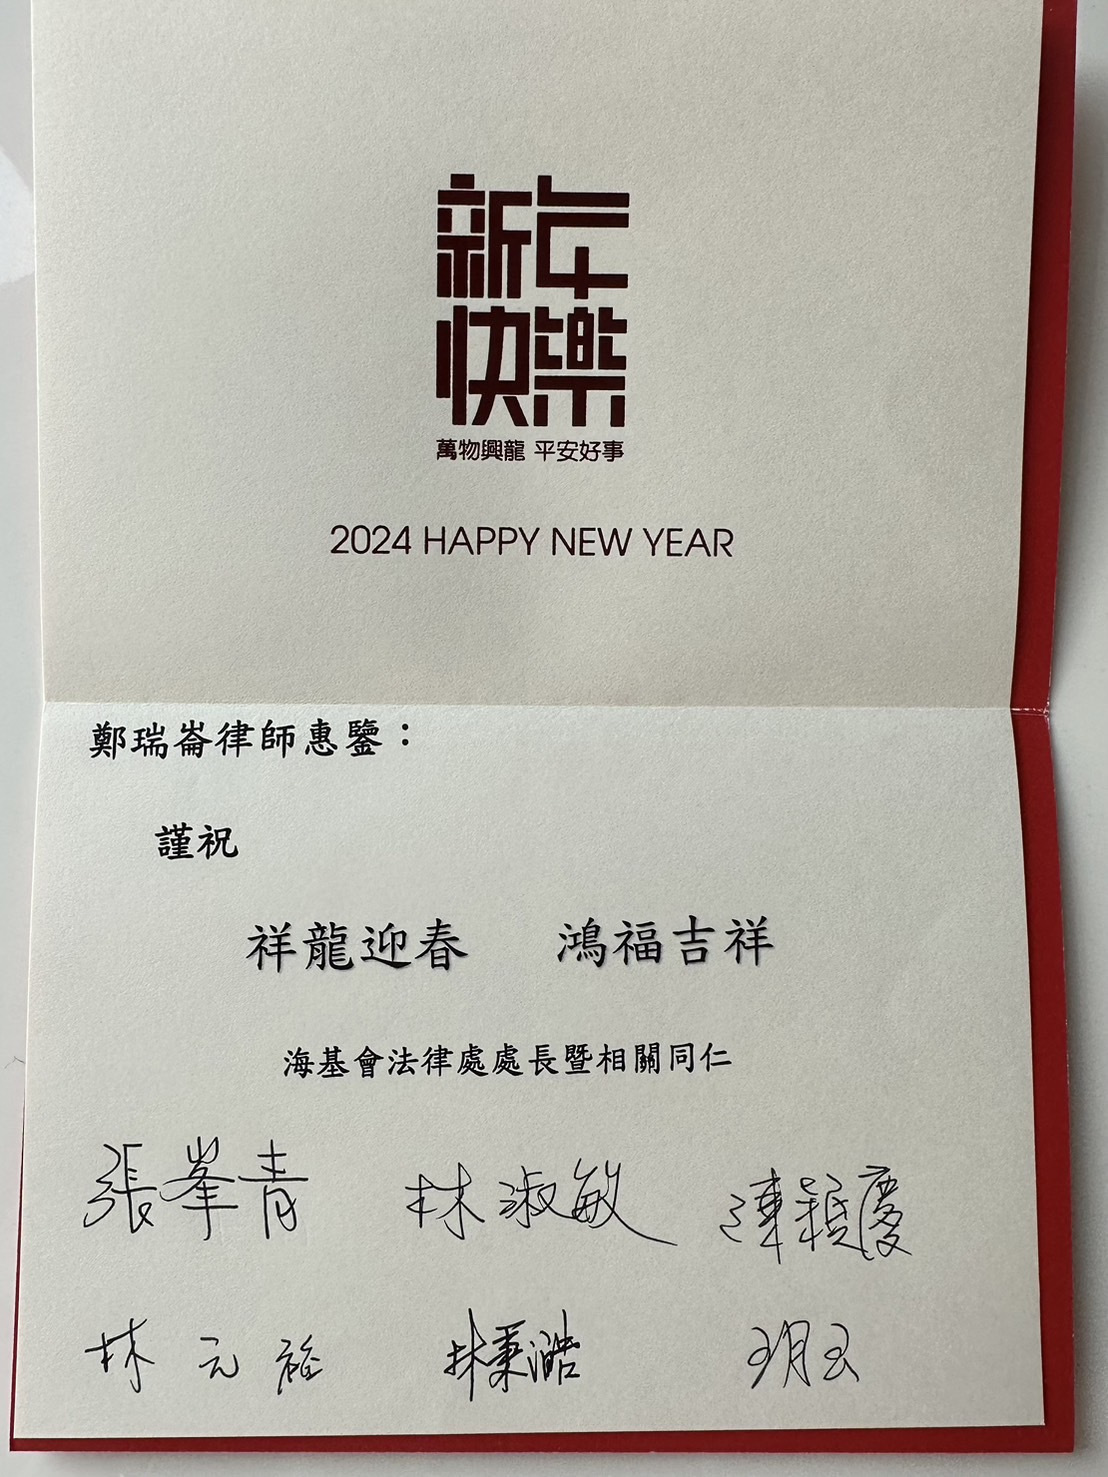 新年
快樂
萬物興龍 平安好事
2024 HAPPY NEW YEAR
鄭瑞崙律師惠鑒：
謹祝
祥龍迎春 鴻福吉祥
海基會法律處處長暨相關同仁
張峯青 林淑敏
林元 林秉澔